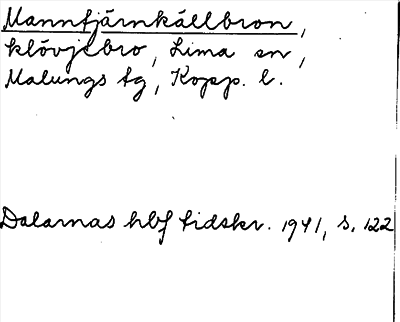 Manntjärnkällbron,
klövjebro, Lima sn,
Malungs tg, Kopp. l.
Dalarnas hbf tidskr. 1941, s. 122